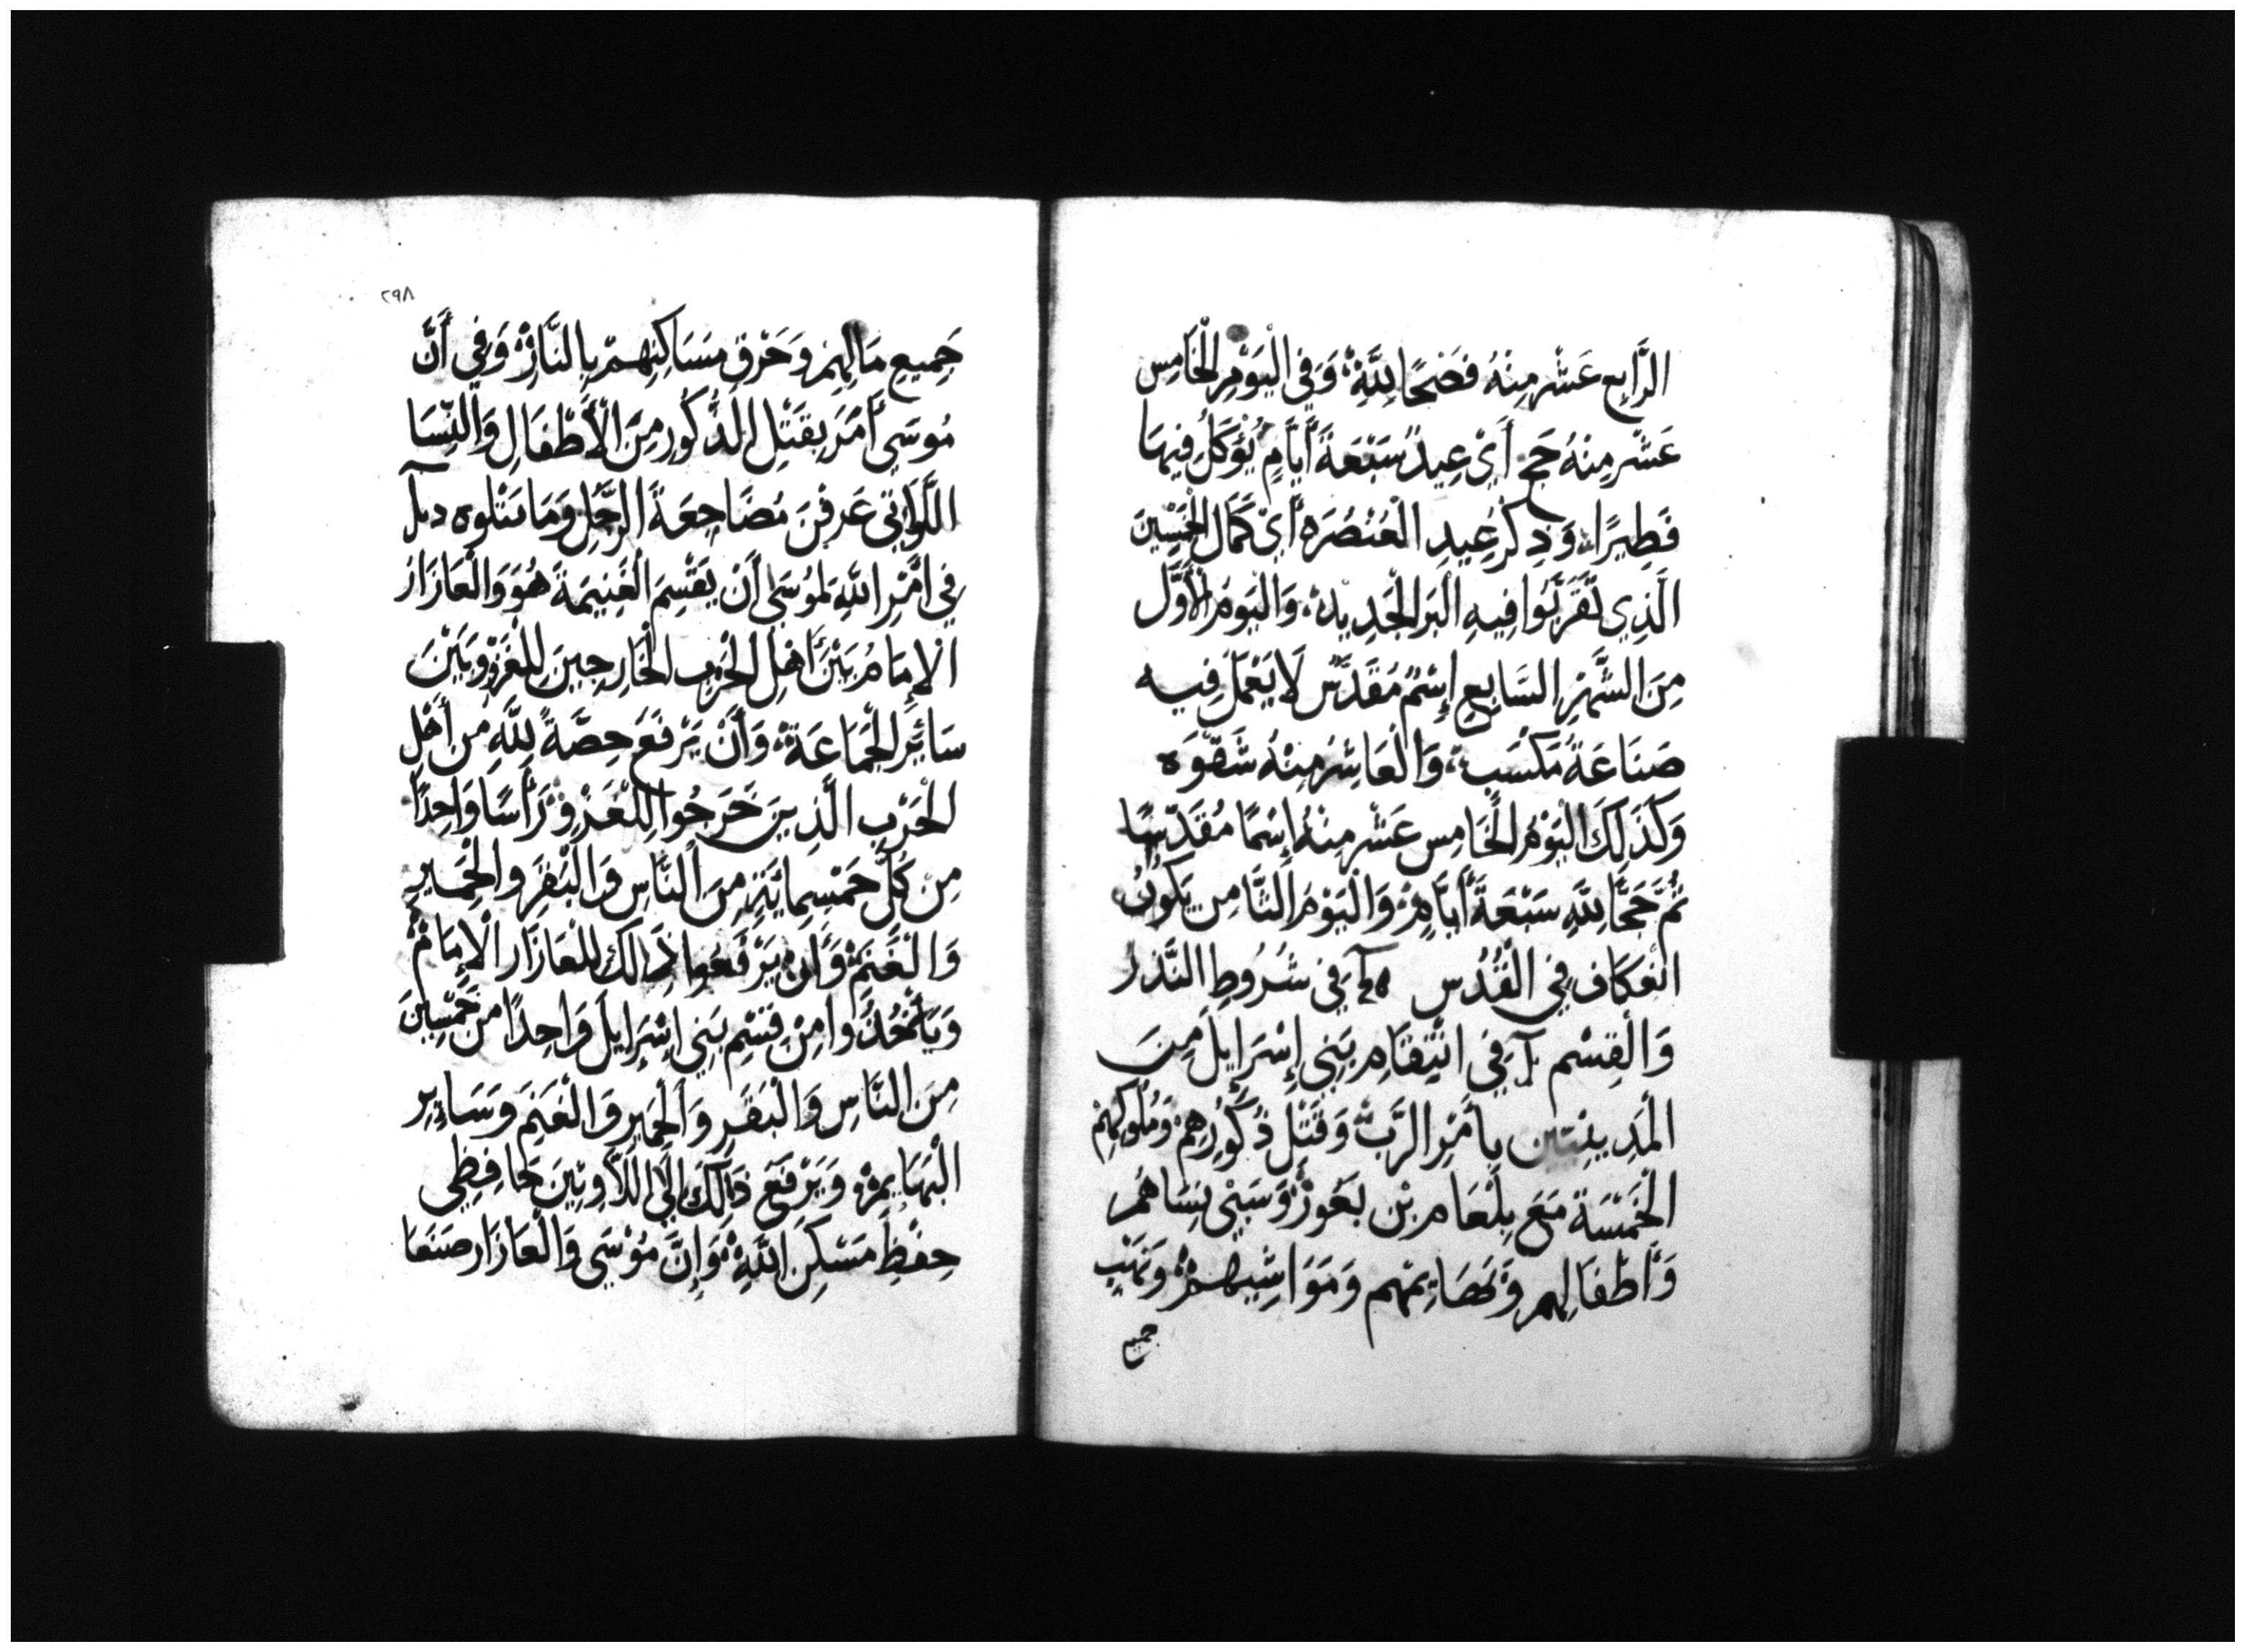 الرَّابِع عَشْر مِنْهُ فَصْحًا لِلَّهِ وَفِي الْيَوْمِ الْخَامِس
عَشْر مِنْهُ حَج أَيْ عِيدُ سَبْعَةَ أَيَّامٍ يُؤكَلُ فِيهَا
فَطِيرًا وَذِكْرُ عِيدِ الْعُنْصُرَه أَيْ كَمَال الْخَمْسِينَ
الَّذِي تَقَرَّبُوا فِيهِ الْبَر الْجَدِيد وَالْيَومُ الْأَوَّل
مِنَ الشَّهْرِ السَّابِعِ إِسْمُ مُقَدَّسٌ لَا يَعْمَلُ فِيه
صَنَاعَةُ مَكْسَبٍ وَالْعَاشِرُ مِنْهُ شَقْوَه
وَكَذَلِكَ الْيَوْمُ الْخَامِس عَشْر مِنْهُ إِسْمًا مُقَدَّسًا
ثُمَّ حَجًّا لِلَّهِ سَبْعَةَ أَيَّامٍ وَالْيَوْمُ الثَّامِن يَكُونُ
انْعكَاف فِي الْقُدْس فِي شُرُوطِ النَّذر
وَالْقِسْم فِي انْتِقَامِ بَنِي إِسْرَايِلَ مِنَ
الْمَدِينِيِّين بِأَمْرِ الرَّبِّ وَقَتْلِ ذُكُورِهِمْ وَمُلُوكِهِمْ
الْخَمْسَة مَعَ بِلْعَام بْن بَعُوزْ وَسَبْيِ نِسَاهُم
وَأَطْفَالِهِم وَبَهَايِمْهِم وَمَوَاشِيهِمْ وَنَهْبِ
جميع
٢٩٨
جَمِيعِ مَالِهِمْ وَحَرْقِ مَسَاكِنِهِمْ بِالنَّارْ وَفِي أَنَّ
مُوسَى أَمَرَ بِقَتْلِ الذُّكُورِ مِنَ الْأَطْفَالِ وَالنِّسَا
اللَّوَاتِي عَرفْنَ مُضَاجِعَةَ الرَّجُلِ وَمَا يتْلوه
فِي أَمْرِ اللَّهِ لِمُوسَى أَنْ يَقْسِم الْغَنِيمَةَ هُوَ وَالْعَازَار
الْإِمَامُ بَيْنَ أَهْلِ الْحَرْب الْخَارِجِينَ لِلْغَزْو وَبَيْنَ
سَائِر الْجَمَاعَة وَأَنْ يَرْفَعَ حِصَّةً لِلَّهِ مِن أَهْلِ
الْحَرْب الَّذِينَ خَرَجُوا لِلْغَزْو رَأْسًا وَاحِدًا
مِنْ كُلِّ خَمْسِمائَةٍ مِنَ النَّاسِ وَالْبَقَر وَالْحَمِير
وَالْغَنَمْ وَأَنْ يَرْفَعُوا ذَالِكَ لِلْعَازَار الْإِمَامْ
وَيَأْخُذُوا مِنْ قِسْمِ بَنِي اِسْرَايِلَ وَاحِدًا مِن خَمْسِينَ
مِنَ النَّاسِ وَالْبَقَرِ وَالْحَمِيرِ وَالْغَنَمِ وَسَايِرِ
الْبَهَايِمْ وَيَرْفَعَ ذَالِكَ إِلَى اللَّاوِيِّينَ حَافِظِي
حِفْظِ مَسْكِنِ اللَّهِ وَإِنَّ مُوْسَى وَالْعَازَار صَنَعَا